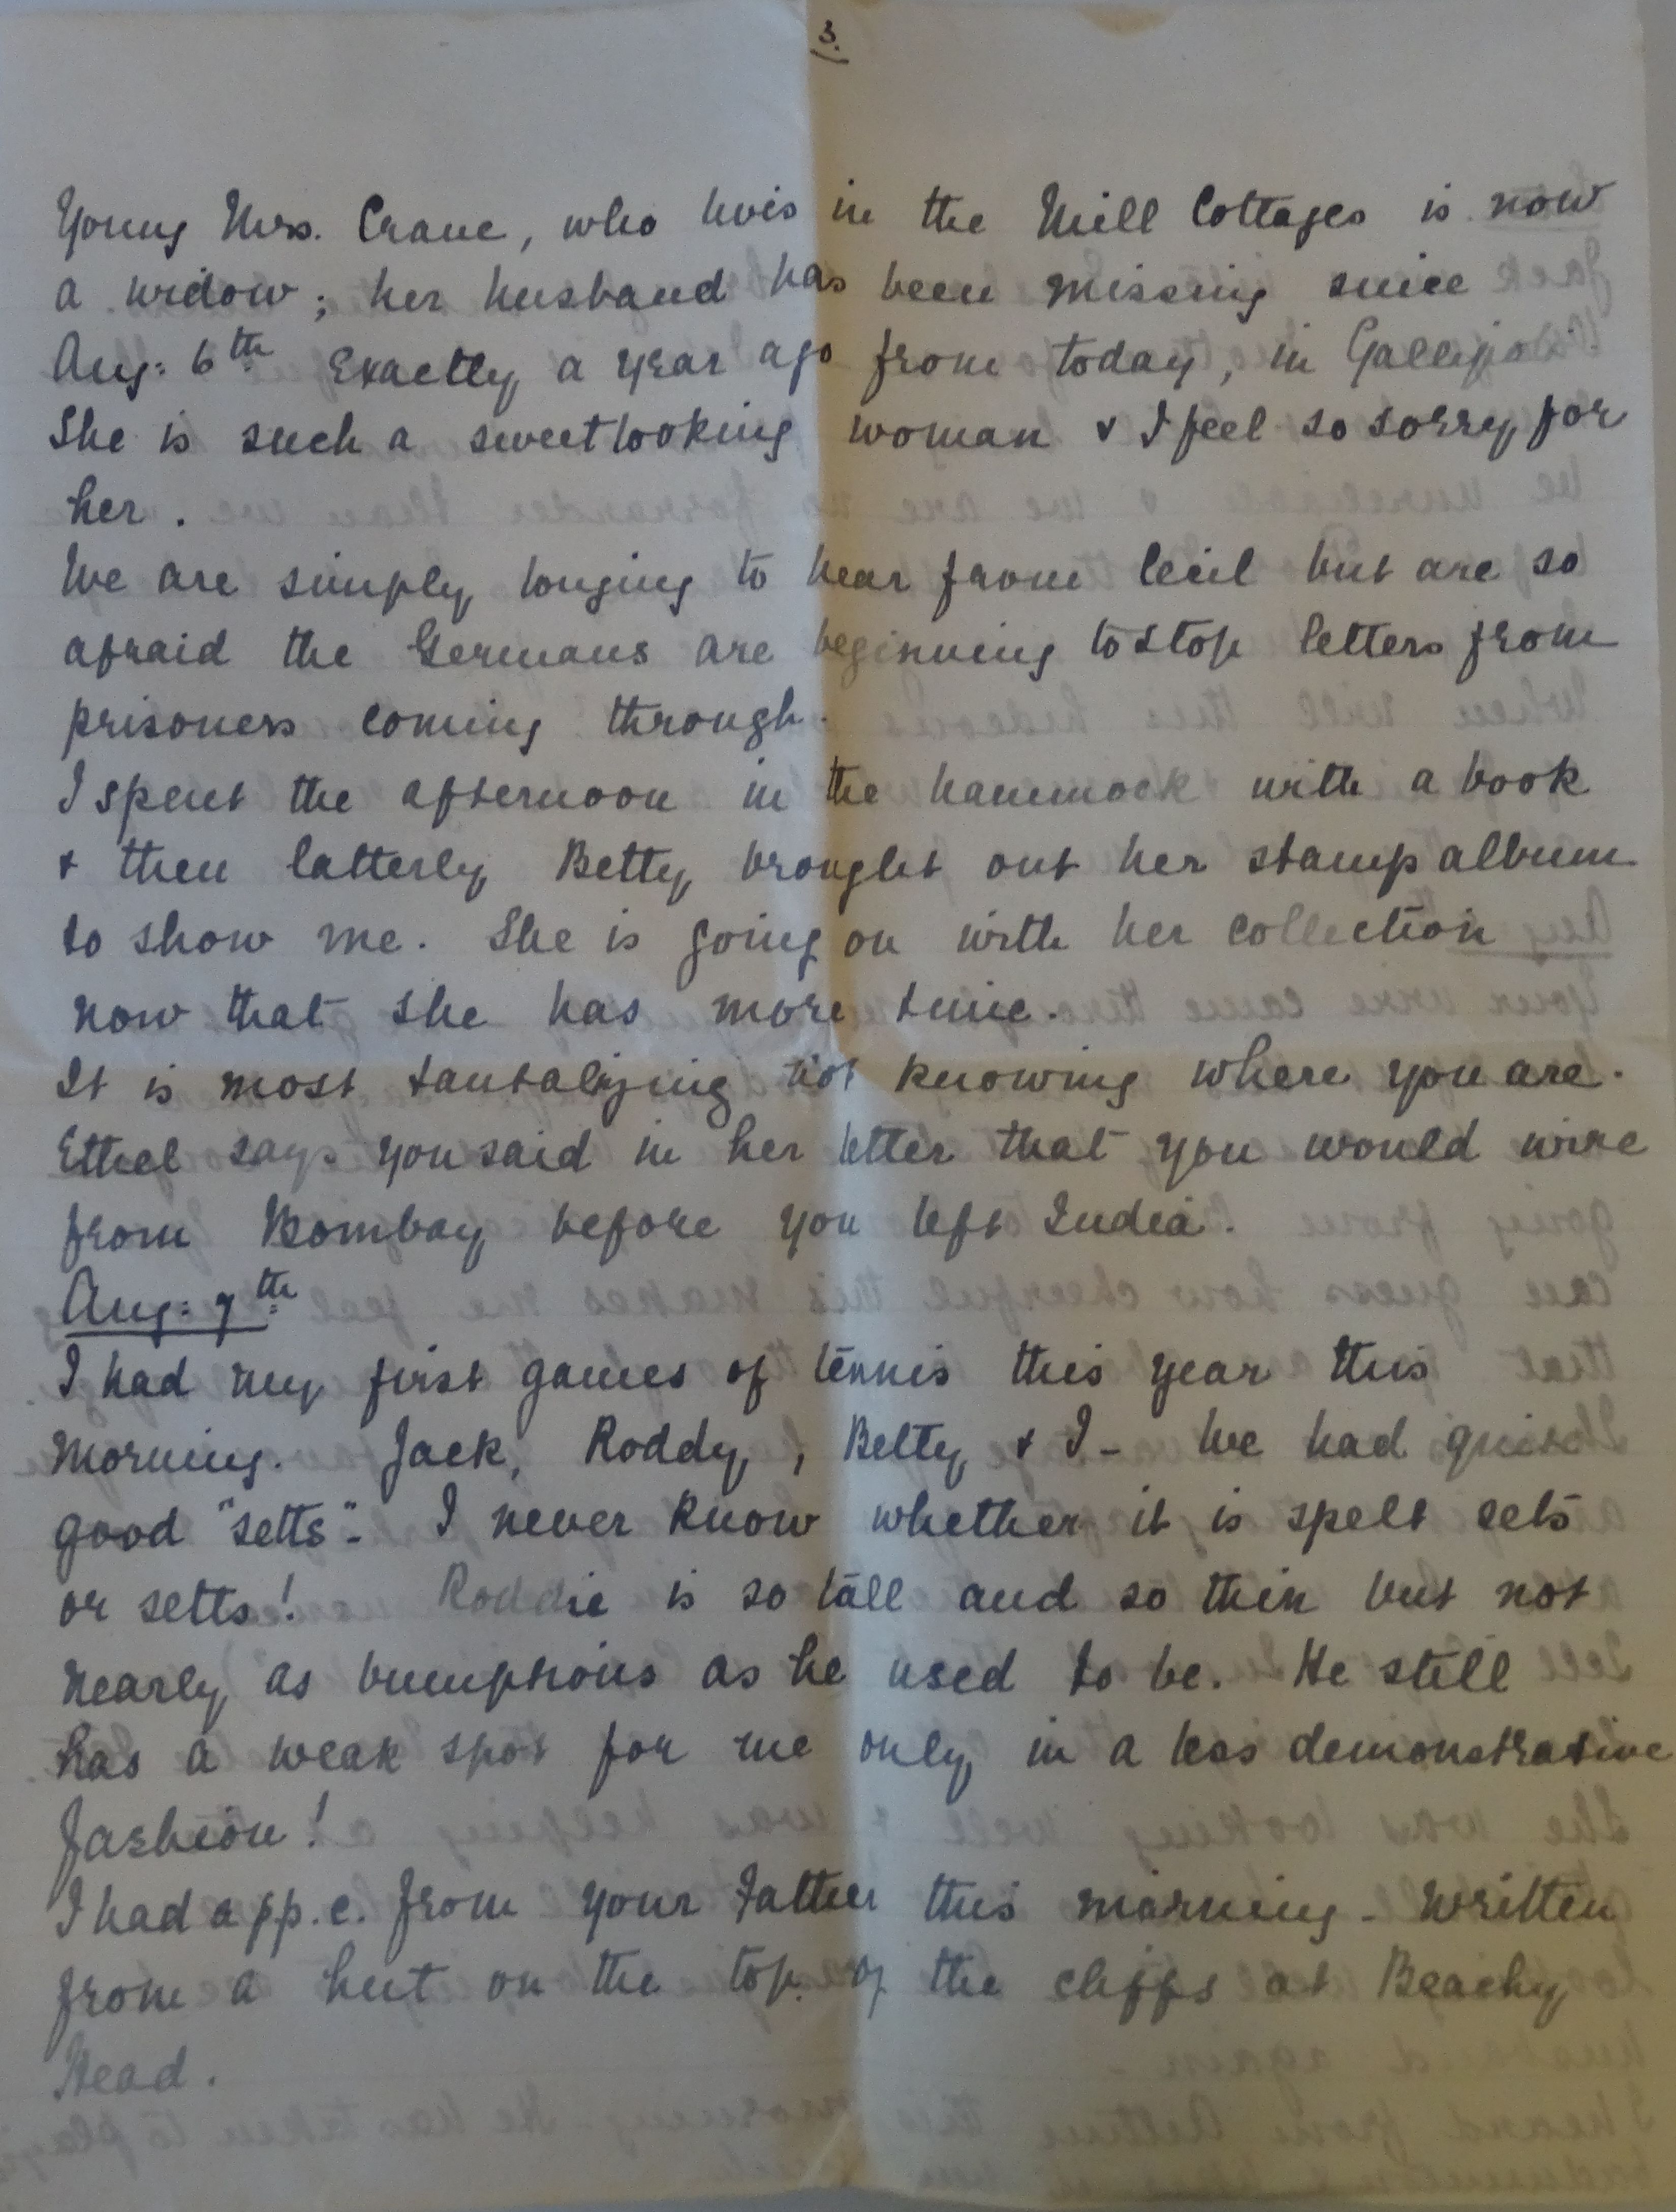 3.
Young Mrs. Crane, who lives in the Mill Cottages is now
a widow; her husband has been missing since
Aug: 6th Exactly a year ago from today, in Gallipoli
She is such a sweetlooking woman & I feel so sorry for
her.
We are simply longing to hear from Cecil but are so
afraid the Germans are beginning to stop letters from
prisoners coming through.
I spent the afternoon in the hammock with a book
& then latterly Betty brought out her stamp album
to show me. She is going on with her collection
now that she has more time.
It is most tantalizing not knowing where you are.
Ethel says you said in her letter that you would wire
from Bombay before you left India.
Aug: 7th
I had my first games of tennis this year this
morning. Jack, Roddy, Betty & I - We had quite
good "setts" - I never know whether it is spelt sets
or setts! Roddie is so tall and so thin but not
nearly as bumptious as he used to be. He still
has a weak spot for me only in a less demonstrative
fashion!
I had a pp.c. from your Father this morning - written
from a hut on the top of the cliffs at Beachy
Head.